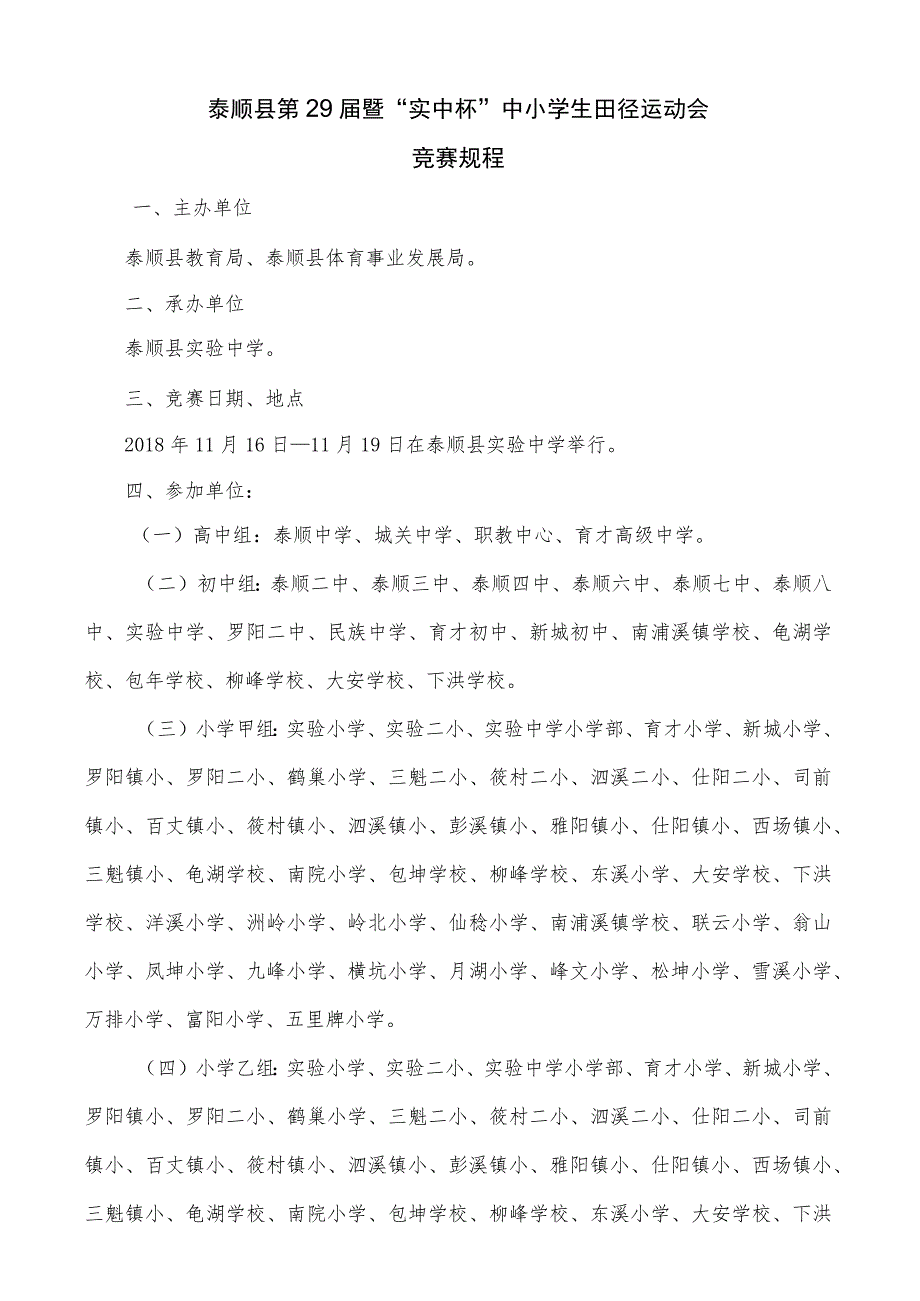 泰顺县第 29 届暨“实中杯”中小学生田径运动会
竞赛规程
一、主办单位
泰顺县教育局、泰顺县体育事业发展局。
二、承办单位
泰顺县实验中学。
三、竞赛日期、地点
2018 年 11 月 16 日—11 月 19 日在泰顺县实验中学举行。
四、参加单位：
（一）高中组：泰顺中学、城关中学、职教中心、育才高级中学。
（二）初中组：泰顺二中、泰顺三中、泰顺四中、泰顺六中、泰顺七中、泰顺八
中、实验中学、罗阳二中、民族中学、育才初中、新城初中、南浦溪镇学校、龟湖学
校、包年学校、柳峰学校、大安学校、下洪学校。
（三）小学甲组：实验小学、实验二小、实验中学小学部、育才小学、新城小学、
罗阳镇小、罗阳二小、鹤巢小学、三魁二小、筱村二小、泗溪二小、仕阳二小、司前
镇小、百丈镇小、筱村镇小、泗溪镇小、彭溪镇小、雅阳镇小、仕阳镇小、西场镇小、
三魁镇小、龟湖学校、南院小学、包坤学校、柳峰学校、东溪小学、大安学校、下洪
学校、洋溪小学、洲岭小学、岭北小学、仙稔小学、南浦溪镇学校、联云小学、翁山
小学、凤坤小学、九峰小学、横坑小学、月湖小学、峰文小学、松坤小学、雪溪小学、
万排小学、富阳小学、五里牌小学。
（四）小学乙组：实验小学、实验二小、实验中学小学部、育才小学、新城小学、
罗阳镇小、罗阳二小、鹤巢小学、三魁二小、筱村二小、泗溪二小、仕阳二小、司前
镇小、百丈镇小、筱村镇小、泗溪镇小、彭溪镇小、雅阳镇小、仕阳镇小、西场镇小、
三魁镇小、龟湖学校、南院小学、包坤学校、柳峰学校、东溪小学、大安学校、下洪